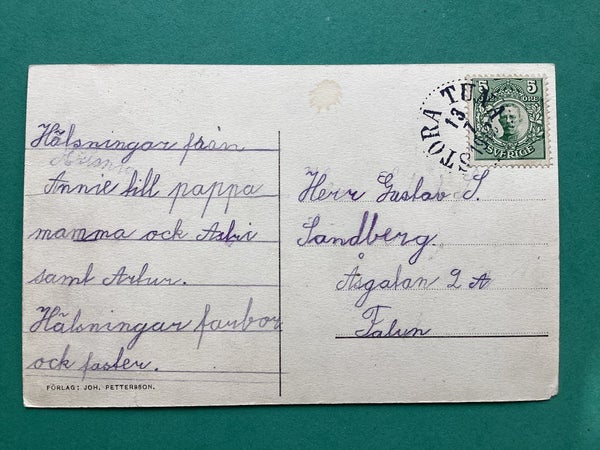 Hälsningar från
Annie till pappa
mamma ock
samt Artur.
Hälsningar farbor
ock faster.
FÖRLAG: JOH. PETTERSSON.
STORA TUNA
13
5 5
ÖRE
SVERIGE
Herr Gustav S.
Sandberg.
Åsgatan 2 A
Falun